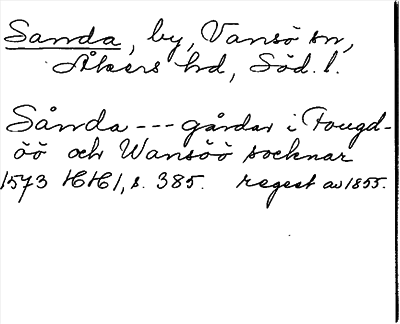 Sanda, by, Vansö sn,
Åkers hd, Söd. l.
Sånda --- gårdar i Fougd-
öö och Wansöö socknar
1573 HH 1, s. 385. regest av 1855.